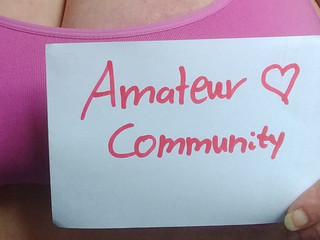 Amateur ♡
Community